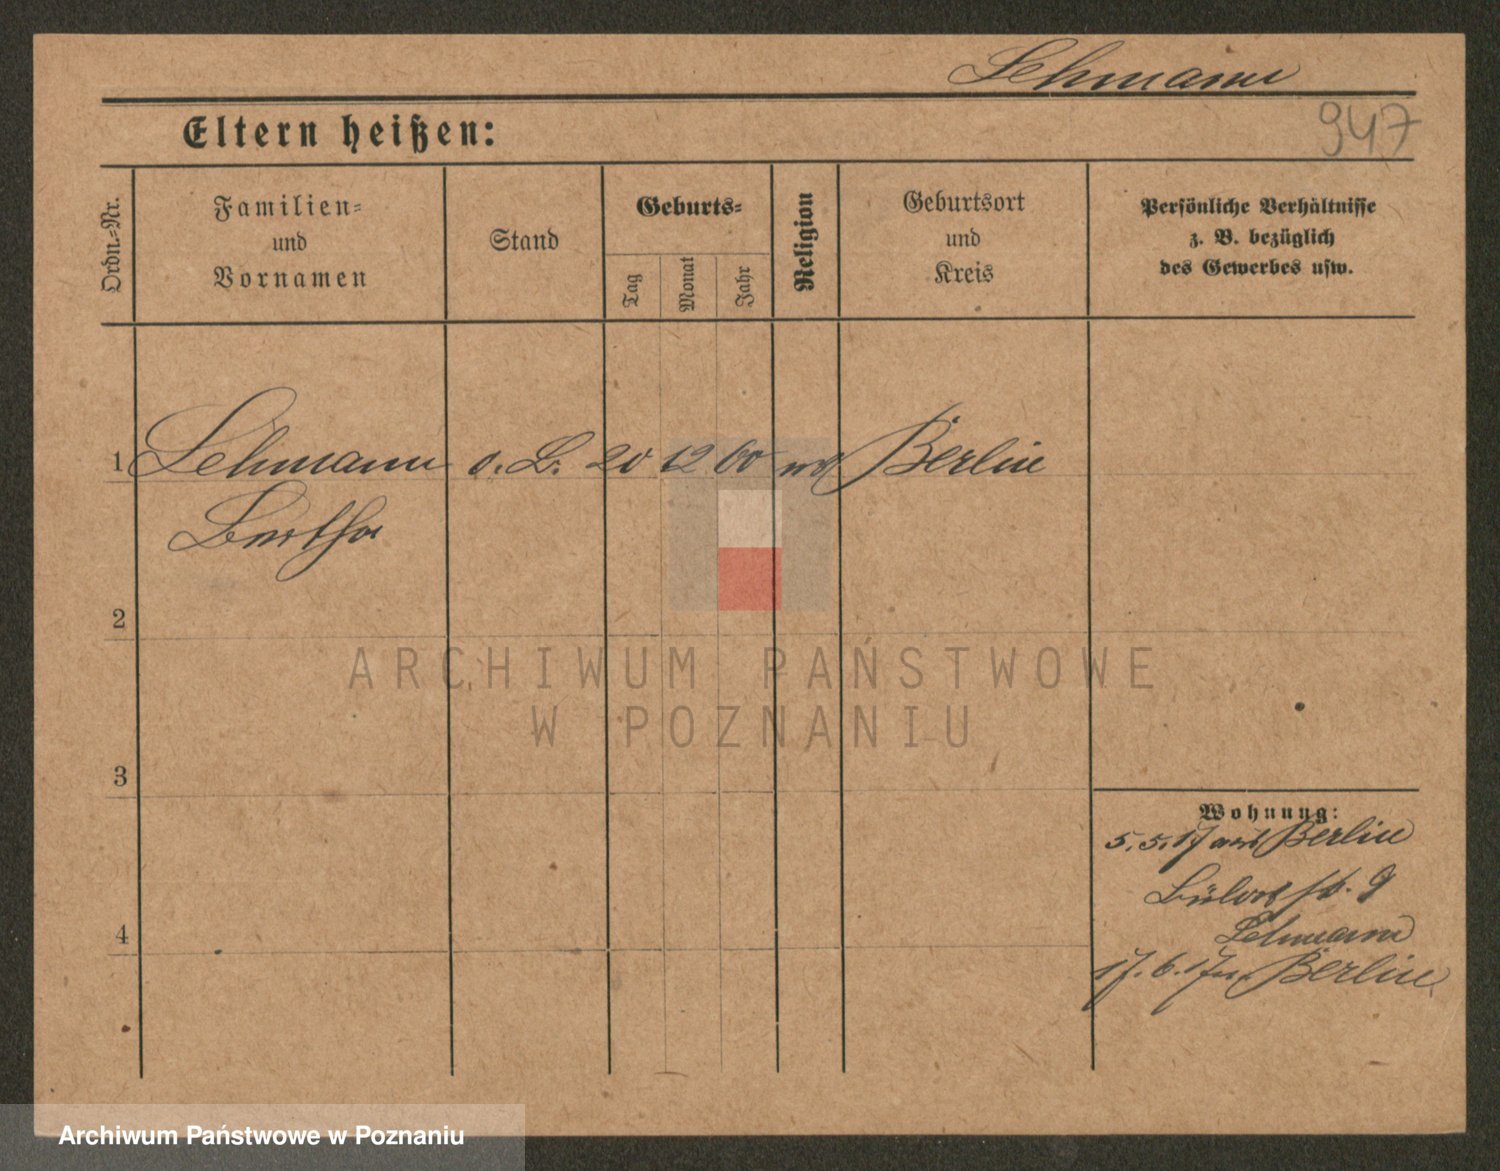 Lehmann
Eltern heißen:
947
Ordn.-Nr.
Familien-
und
Vornamen
Stand
Geburts-
Tag
Monat
Jahr
Religion
Geburtsort
und
Kreis
Persönliche Verhältnisse
z. B. bezüglich
des Gewerbes usw.
1 Lehmann o. B. 20 12 60 Berlin
Bertha
2
ARCHIWUM PAŃSTWOWE
W POZNANIU
3
Wohnung:
5.5.17 aus Berlin
9
Lehmann
4
17.6.17 Berlin
Archiwum Państwowe w Poznaniu